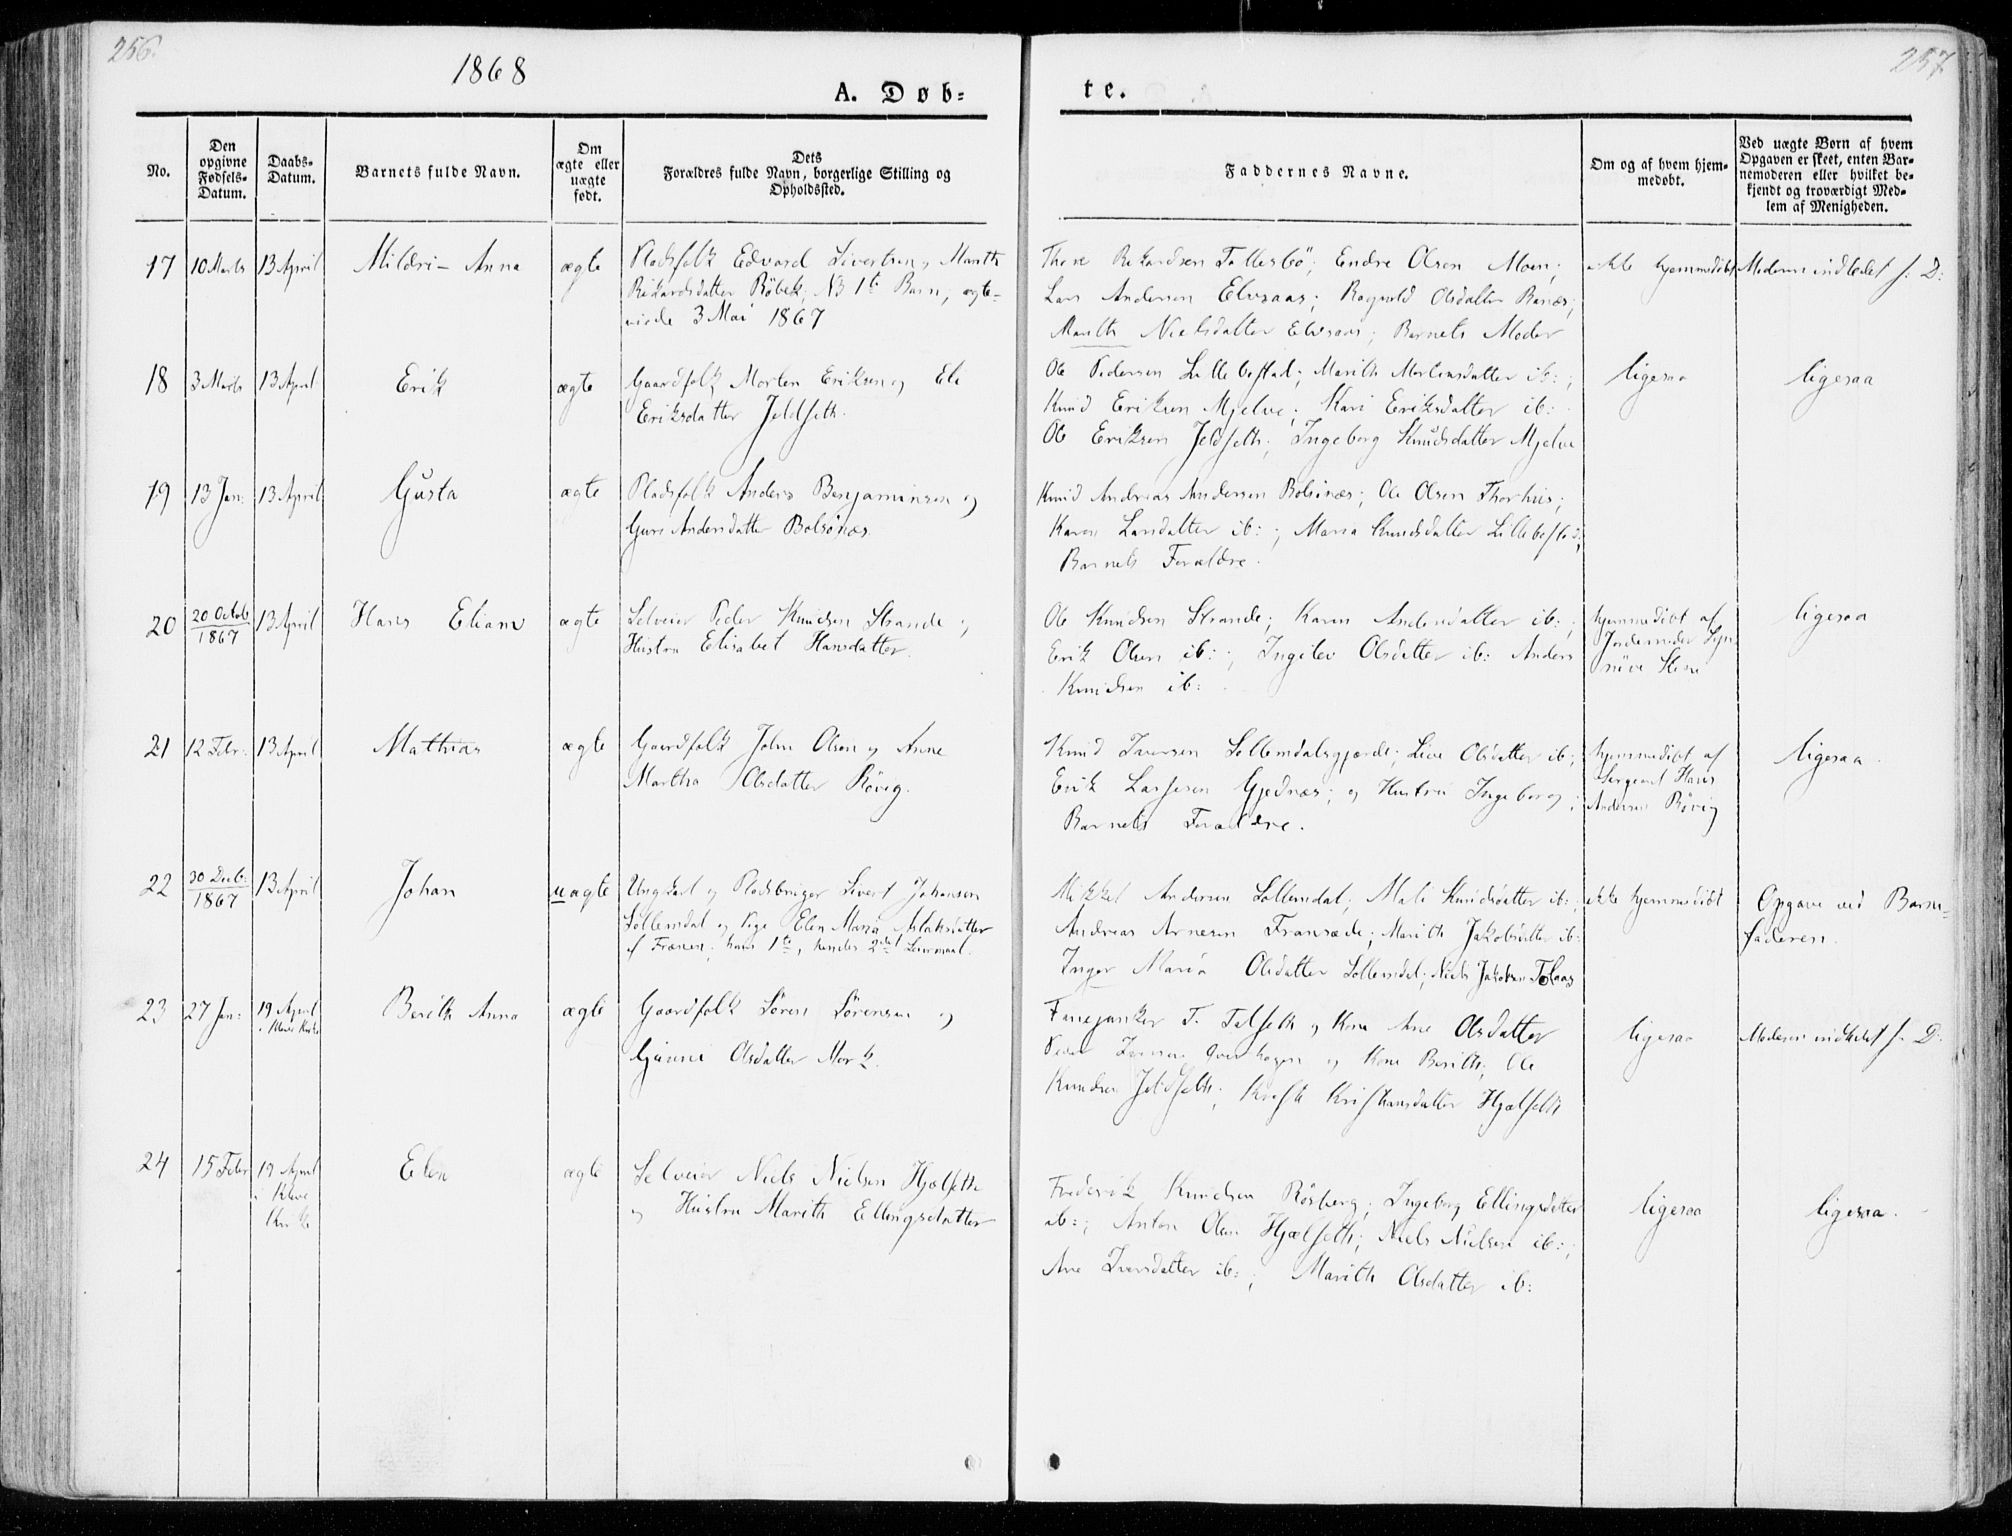 256.
257
1868
A. Døb=
te.
No.
Den
opgivne
Fødsels-
Datum.
Daabs-
Datum.
Barnets fulde Navn.
Om
ægte eller
uægte
født.
Dets
Forældres fulde Navn, borgerlige Stilling og
Opholdssted.
Faddernes Navne.
Om og af hvem hjem-
medøbt.
Ved uægte Børn af hvem
Opgaven er skeet, enten Bar-
nemoderen eller hvilket be-
kjendt og troværdigt Med-
lem af Menigheden.
17
10 Marts
13 April
Mildri- Anna
ægte
Pladsfolk Edvard Sivertsen, Marith
Rikardsdatter Røbek; NB 1te Barn, ægte-
viede 3 Mai 1867
Thore Rikardsen Tollesbø; Endre Olsen Moen;
Lars Andersen Elvsaas; Ragnild Olsdatter Ranæs;
Marith Nielsdatter Elvsaas; Barnets Moder
ikke hjemmedøbt
Moderen indledet s. D:
18
3 Marts
13 April
Erik
ægte
Gaardfolk Morten Eriksen og Eli
Eriksdatter Jeldseth.
Ole Pedersen Lillebostad; Marith Mortensdatter ib:;
Knud Eriksen Mjelve; Kari Eriksdatter ib:
Ole Eriksen Jeldseth; Ingeborg Knudsdatter Mjelve
ligesaa
ligesaa
19
13 Jan:
13 April
Gusta
ægte
Pladsfolk Anders Benjaminsen og
Guri Andersdatter Bolsønæs.
Knud Andreas Andersen Bolsønæs; Ole Olsen Thorhus;
Karen Larsdatter ib:; Maria Knudsdatter Lillebostad;
Barnets Forældre.
20
20 Octob
1867
13 April
Hans Elians
ægte
Selveier Peder Knudsen Strande og
Hustru Elisabet Hansdatter.
Ole Knudsen Strande; Karen Andersdatter ib:;
Erik Olsen ib:; Ingilev Olsdatter ib: Anders
Knudsen ib:
hjemmedøbt af
Jordemoder Syn-
nøve
ligesaa
21
12 Febr:
13 April
Mathias
ægte
Gaardfolk John Olsen og Anne
Martha Olsdatter Røvig.
Knud Iversen Sollemdalsgjærde; Live Olsdatter ib;
Erik Lassesen Gjednæs; og Hustru Ingeborg;
Barnets Forældre.
hjemmedøbt af
Sergeant Hans
Andersen Røvig
ligesaa.
22
30 Decb:
1867
13 April
Johan
uægte
Ungkarl og Pladsbruger Sivert Johansen
Sollemdal og Pige Elen Maria Aslaksdatter
af Frænen; hans 1te, hendes 2det Leiermaal.
Mikkel Andersen Sollemdal; Mali Knudsdatter ib:;
Andreas Arnesen Fransæde; Marith Jakobsdatter ib:
Inger Maria Olsdatter Sollemdal; Niels Jakobsen Tolaas
ikke hjemmedøbt
Opgave ved Barne-
faderen.
23
27 Jan:
19 April
i Kleve Kirke
Berith Anna
ægte
Gaardfolk Søren Sørensen og
Gunni Olsdatter Mork.
Fanejunker T. Talseth og Kone Ane Olsdatter
Peder Iversen Qverhagen og Kone Berith; Ole
Knudsen Jeldseth; Kristi Kristiansdatter Hjælseth
ligesaa
Moderen indledet s. D.
24
15 Febr
19 April
i Kleve
Kirke
Elen
ægte
Selveier Niels Nielsen Hjælseth
og Hustru Marith Ellingsdatter
Frederik Knudsen Røsberg; Ingeborg Ellingsdatter
ib:; Anton Olsen Hjælseth; Niels Nielsen ib:;
Ane Iversdatter ib:; Marith Olsdatter ib:
ligesaa
ligesaa.